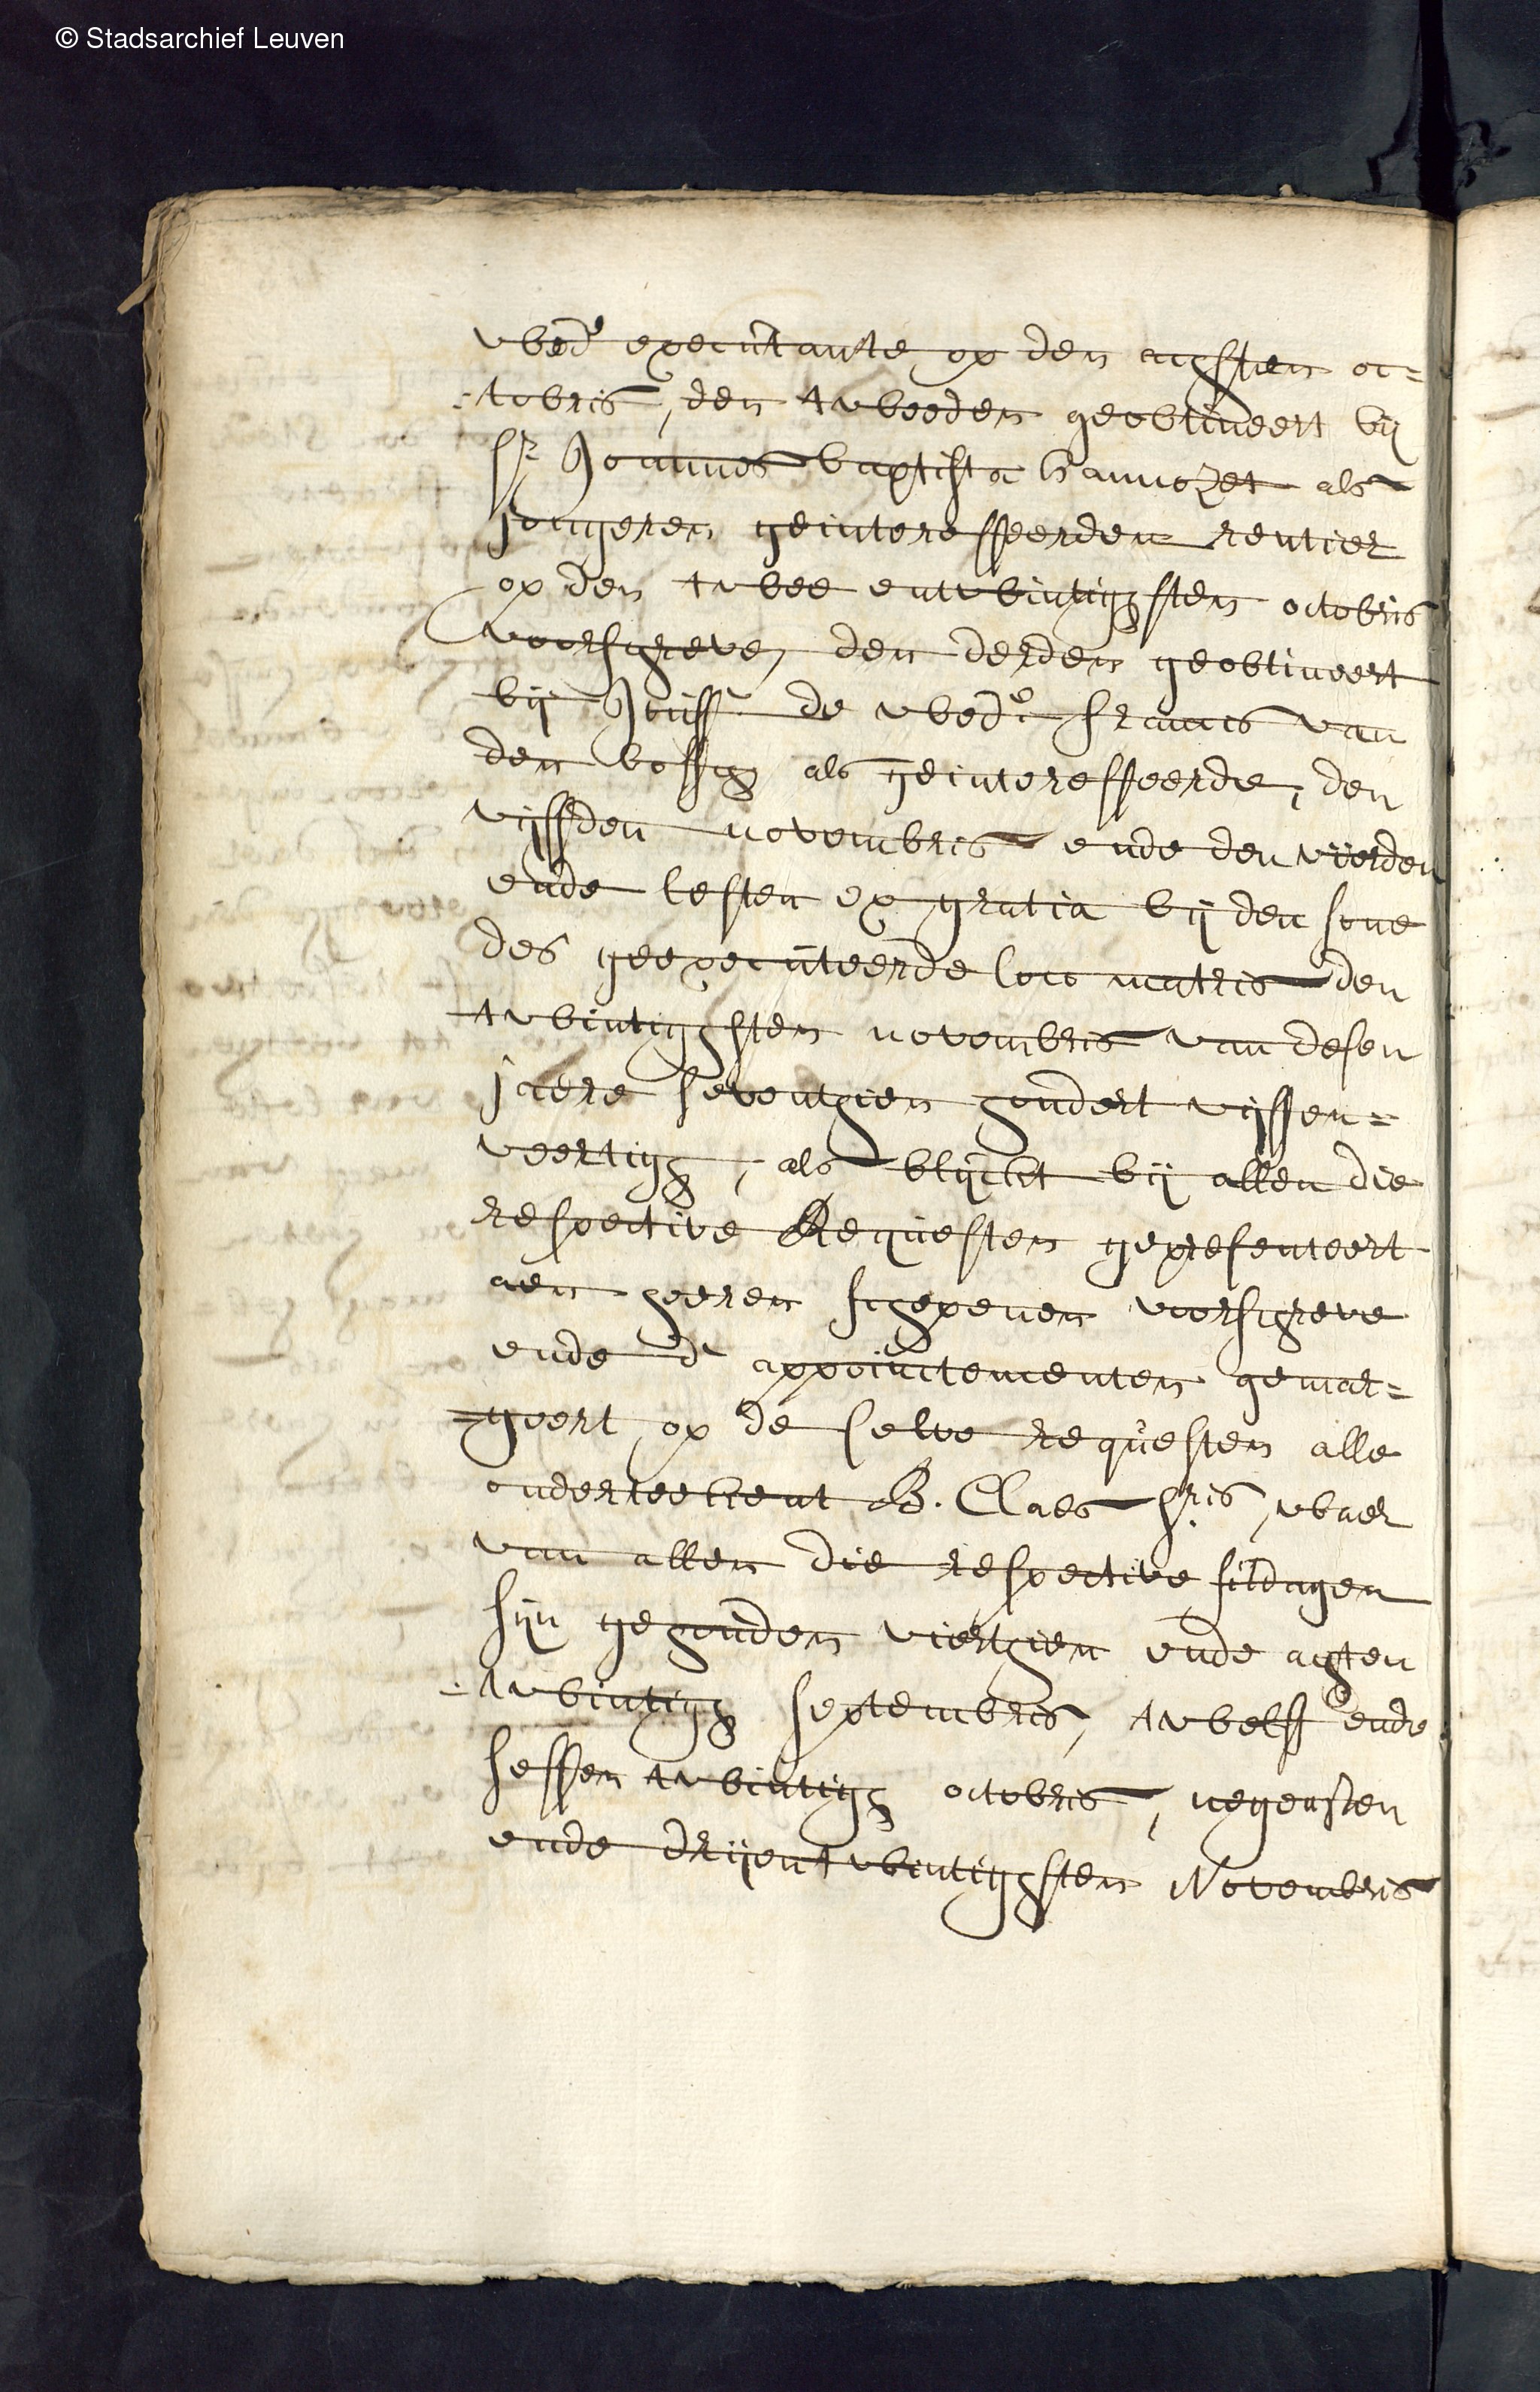 © Stadsarchief Leuven
wed.e executante op den achsten oc=
=tobris, den tweeden geobtineert bij
Sr Joannes baptista Hannozet als
jongeren geinteresseerden rentier
op den twee entwintighsten octobris
voorschreve, den derden geobtineert
bij Jouff.e de wed.e Francis van
den bossch als geinteresseerde, den
vijffden novembris ende den vierden
ende lesten ex gratia bij den sone
des geexecuteerde loco matris den
twintighsten novembris van desen
jaere seventhien hondert vijffen=
veertigh, als blijckt bij allen die
respective Requesten gepresenteert
aen heeren schepenen voorschreve
ende d' appoinctementen gemar=
=geert op de selve requesten alle
onderteekent B. Claes S.ris, waer
van allen die respective sitdagen
sijn gehouden vierthien ende achten
=twintigh septembris, twelff ende
sessen twintigh octobris, negensten
ende drijentwintighsten Novembris